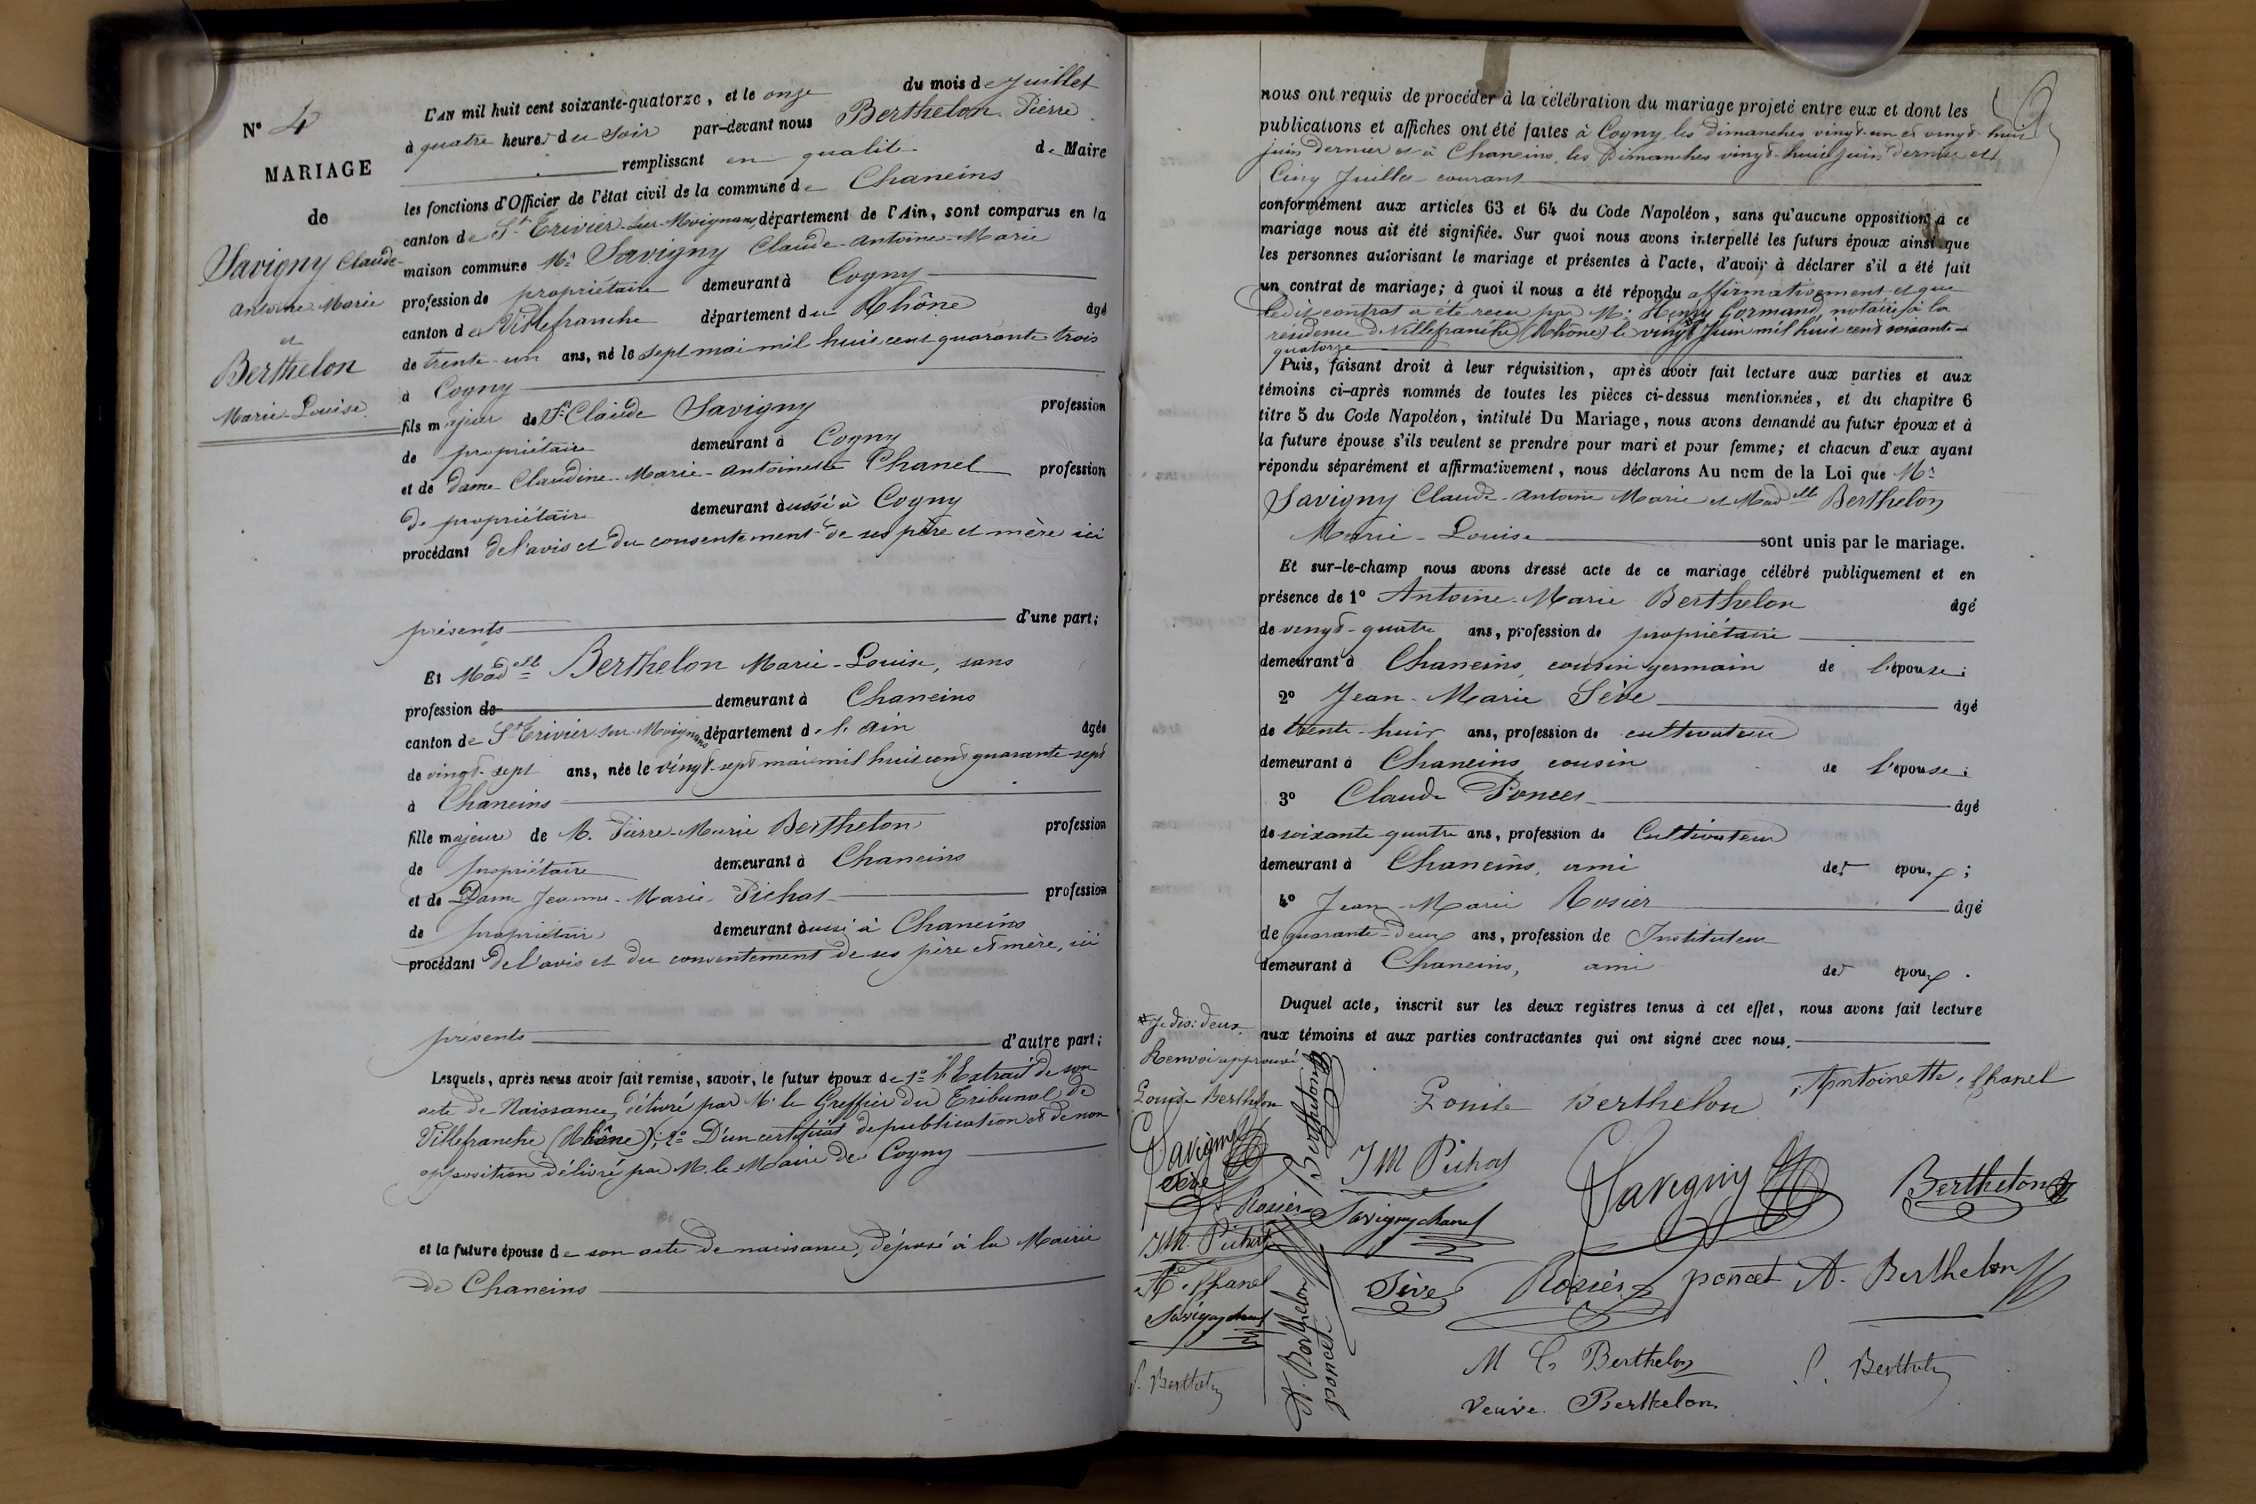 N° 4
MARIAGE
de
Savigny Claude-
Antoine Marie
et
Berthelon
Marie-Louise
L'AN mil huit cent soixante-quatorze, et le onze du mois de Juillet
à quatre heures du Soir par-devant nous Berthelon Pierre
remplissant en qualité de Maire
les fonctions d'Officier de l'état civil de la commune de Chaneins
canton de St Trivier-sur-Moignans, département de l'Ain, sont comparus en la
maison commune Mr Savigny Claude-Antoine-Marie
profession de propriétaire demeurant à Cogny
canton de Villefranche département du Rhône âgé
de trente-un ans, né le sept mai mil huit cent quarante trois
à Cogny
fils majeur de Sr Claude Savigny profession
de propriétaire demeurant à Cogny
et de dame Claudine-Marie-Antoinette Chanel profession
de propriétaire demeurant aussi à Cogny
procédant de l'avis et du consentement de ses père et mère ici
présents d'une part;
Et Madelle Berthelon Marie-Louise, sans
profession de demeurant à Chaneins
canton de St Trivier-sur-Moignans département de l'Ain âgée
de vingt-sept ans, née le vingt-sept mai mil huit cent quarante-sept
à Chaneins
fille majeure de M. Pierre-Marie Berthelon profession
de propriétaire demeurant à Chaneins
et de Dame Jeanne-Marie Pichat profession
de propriétaire demeurant aussi à Chaneins
procédant de l'avis et du consentement de ses père et mère, ici
présents d'autre part;
Lesquels, après nous avoir fait remise, savoir, le futur époux de 1° l'Extrait de son
acte de Naissance, délivré par Mr le Greffier du Tribunal de
Villefranche (Rhône); 2° D'un certificat de publication et de non
opposition délivré par M. le Maire de Cogny
et la future épouse de son acte de naissance, déposé à la Mairie
de Chaneins
nous ont requis de procéder à la célébration du mariage projeté entre eux et dont les
publications et affiches ont été faites à Cogny les dimanches vingt-un et vingt-huit
juin dernier et à Chaneins, les Dimanches vingt-huit juin dernier et
Cinq Juillet courant
conformément aux articles 63 et 64 du Code Napoléon, sans qu'aucune opposition à ce
mariage nous ait été signifiée. Sur quoi nous avons interpellé les futurs époux ainsi que
les personnes autorisant le mariage et présentes à l'acte, d'avoir à déclarer s'il a été fait
un contrat de mariage; à quoi il nous a été répondu affirmativement et que
ledit contrat a été reçu par Mr Henry Gormand, notaire à la
résidence de Villefranche (Rhône) le vingt juin mil huit cent soixante-
quatorze
Puis, faisant droit à leur réquisition, après avoir fait lecture aux parties et aux
témoins ci-après nommés de toutes les pièces ci-dessus mentionnées, et du chapitre 6
titre 5 du Code Napoléon, intitulé Du Mariage, nous avons demandé au futur époux et à
la future épouse s'ils veulent se prendre pour mari et pour femme; et chacun d'eux ayant
répondu séparément et affirmativement, nous déclarons Au nom de la Loi que Mr
Savigny Claude-Antoine Marie et Madelle Berthelon
Marie-Louise sont unis par le mariage.
Et sur-le-champ nous avons dressé acte de ce mariage célébré publiquement et en
présence de 1° Antoine-Marie Berthelon âgé
de vingt-quatre ans, profession de propriétaire
demeurant à Chaneins, cousin germain de l'épouse;
2° Jean-Marie Sève âgé
de trente-huit ans, profession de cultivateur
demeurant à Chaneins cousin de l'épouse;
3° Claude Poncet âgé
de soixante-quatre ans, profession de Cultivateur
demeurant à Chaneins, ami des époux;
4° Jean-Marie Rosier âgé
de quarante-deux ans, profession de Instituteur
demeurant à Chaneins, ami des époux.
Duquel acte, inscrit sur les deux registres tenus à cet effet, nous avons fait lecture
aux témoins et aux parties contractantes qui ont signé avec nous.
Je dis: deux
Renvoi approuvé
Louise Berthelon
Savigny
Sève
Rosier
JM Pichat
Ate Chanel
Savigny chanel
P. Berthelon
Berthelon
A. Berthelon
poncet
Louise Berthelon Antoinette Chanel
JM Pichat Savigny Berthelon
Savigny chanel
Sève Rosier poncet A. Berthelon
M C Berthelon P. Berthelon
Veuve Berthelon